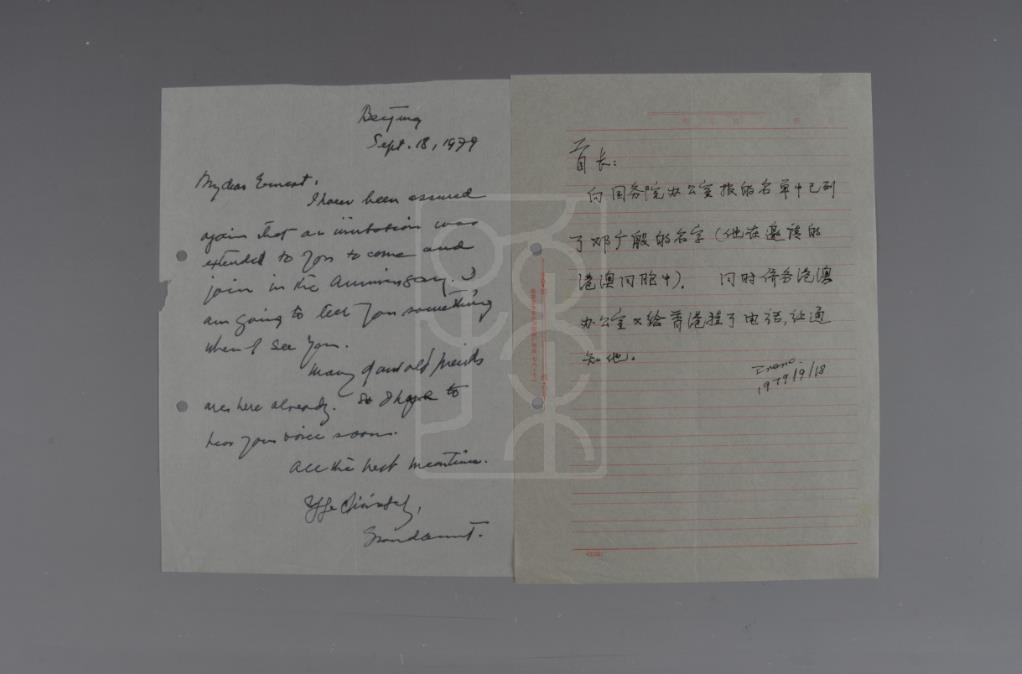 Beijing
Sept. 18, 1979
My dear Ernest,
I have been assured
again that an invitation was
extended to you to come and
join in the Anniversary. I
am going to tell you something
when I see you.
Many of our old friends
are here already. So I hope to
hear your voice soon.
All the best meantime.
Grandaunt.
首长:
向国务院办公室报的名单中已列
了邓广殷的名字(他在邀请的
港澳同胞中)。 同时侨务港澳
办公室又给香港挂了电话,让通
知他。
1979/9/18